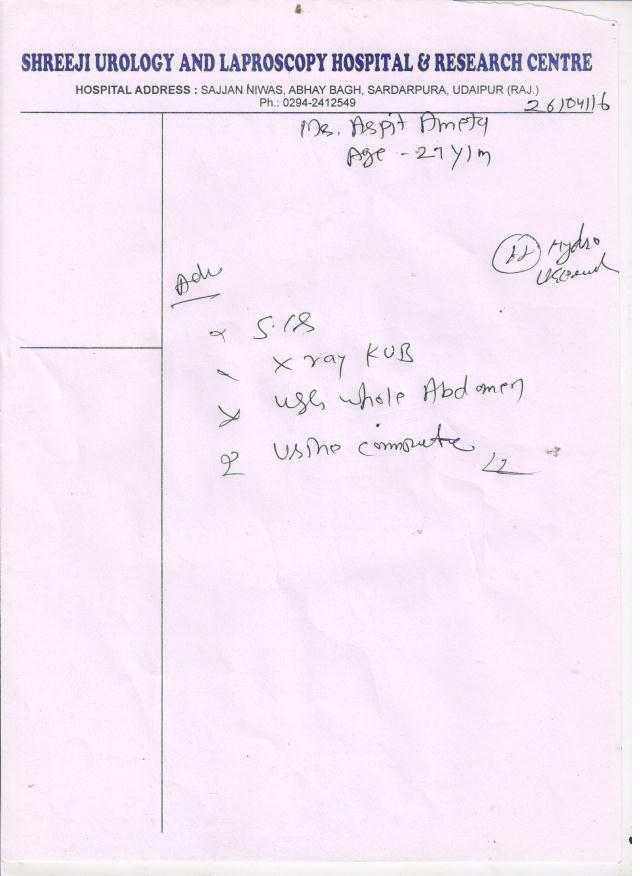 SHREEJI UROLOGY AND LAPROSCOPY HOSPITAL & RESEARCH CENTRE
HOSPITAL ADDRESS : SAJJAN NIWAS, ABHAY BAGH, SARDARPURA, UDAIPUR (RAJ.)
Ph.: 0294-2412549
26/04/16
Mr. Arpit Ameta
Age - 27 Y/m
Hydro
Adv
X ray KUB
whole Abdomen